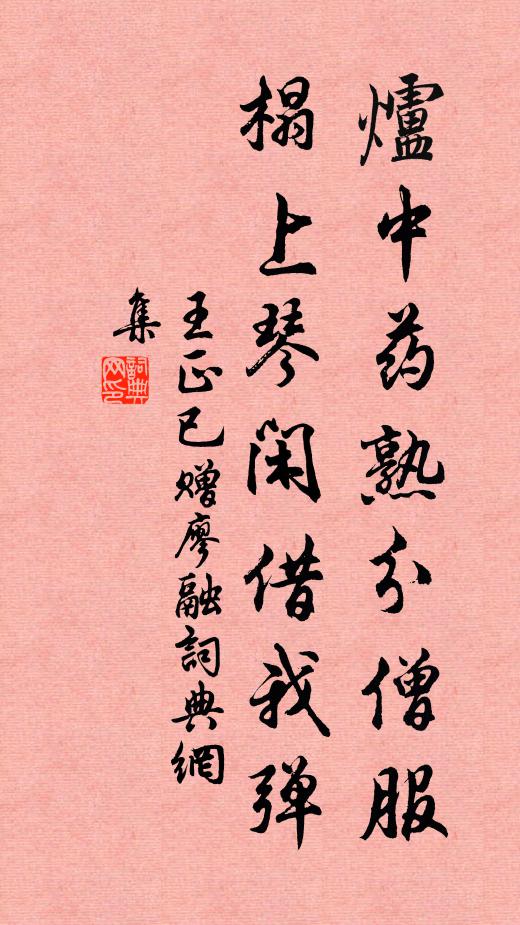 爐中药熟分僧服
榻上琴闲借我弹
王正己赠廖融詞典網
集
詞典
网印